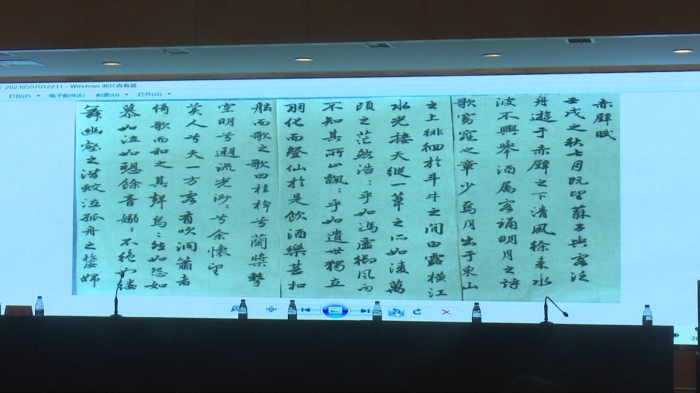 20230507012231 - Windows 照片查看器
打印(P) 电子邮件(E) 刻录(U) 打开(O)
赤壁賦
壬戌之秋七月既望蘇子與客泛
舟遊于赤壁之下清風徐来水
波不興舉酒属客誦明月之詩
歌窈窕之章少焉月出于東山
之上徘徊於斗牛之間白露横江
水光接天縱一葦之所如凌萬
頃之茫然浩〻乎如馮虚御風而
不知其所止飄〻乎如遺世獨立
羽化而登仙於是飲酒樂甚扣
舷而歌之歌曰桂棹兮蘭槳擊
空明兮遡流光渺〻兮余懷望
美人兮天一方客有吹洞簫者
倚歌而和之其聲烏〻然如怨如
慕如泣如訴餘音嫋〻不绝如缕
舞幽壑之潜蛟泣孤舟之嫠婦